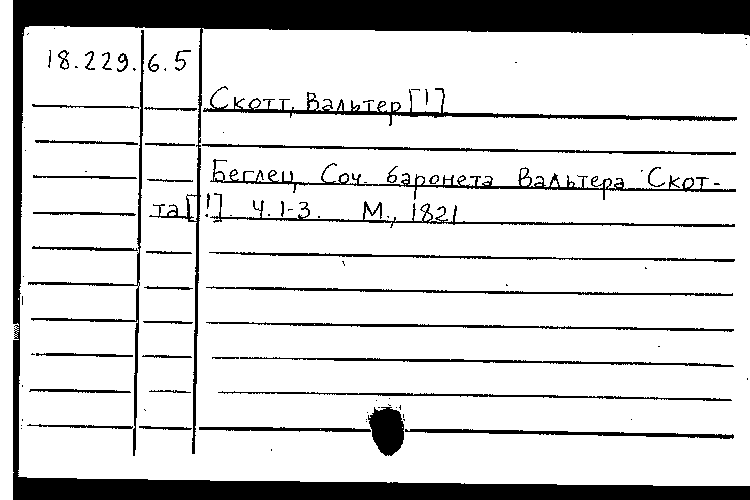 18.229.6.5
Скотт, Вальтер [!]
Беглец. Соч. баронета Вальтера Скот-
та [!]. Ч. 1-3. М., 1821.